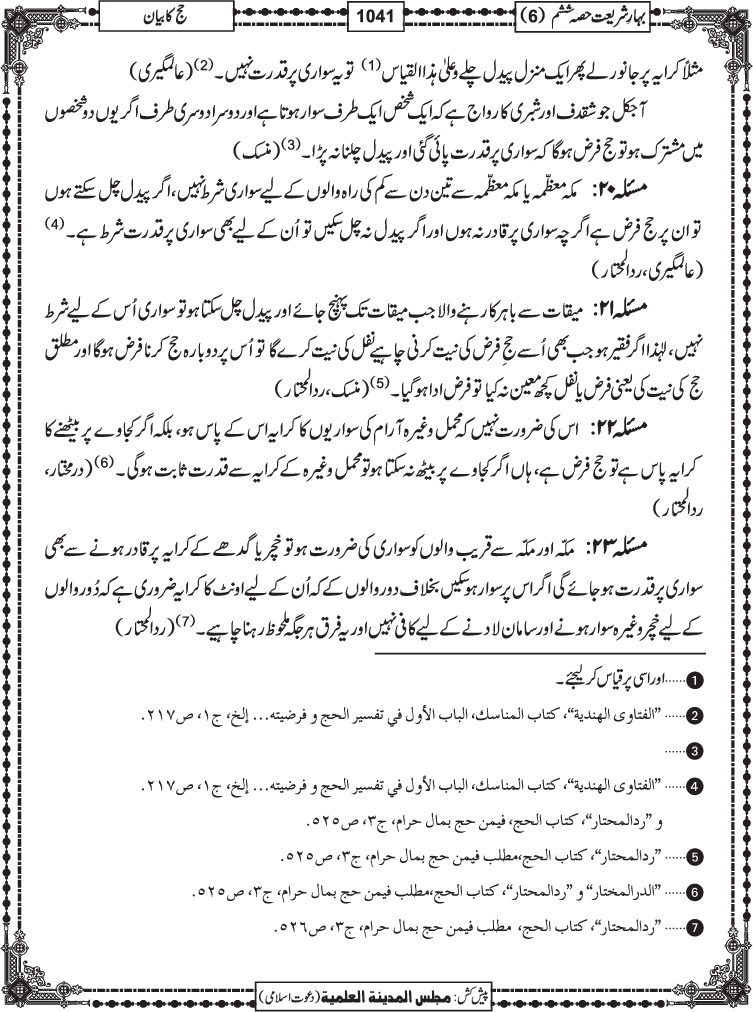 بہارِ شریعت حصہ ششم (6)
1041
حج کا بیان
مثلاً کرایہ پر جانور لے پھر ایک منزل پیدل چلے وعلیٰ ہذا القیاس (1) تو یہ سواری پر قدرت نہیں۔ (2) (عالمگیری)
آجکل جو شقدف اور شبری کا رواج ہے کہ ایک شخص ایک طرف سوار ہوتا ہے اور دوسرا دوسری طرف اگر یوں دو شخصوں
میں مشترک ہو تو حج فرض ہوگا کہ سواری پر قدرت پائی گئی اور پیدل چلنا نہ پڑا۔ (3) (منسک)
مسئلہ ۲۰: مکہ معظّمہ یا مکہ معظّمہ سے تین دن سے کم کی راہ والوں کے لیے سواری شرط نہیں، اگر پیدل چل سکتے ہوں
تو ان پر حج فرض ہے اگرچہ سواری پر قادر نہ ہوں اور اگر پیدل نہ چل سکیں تو اُن کے لیے بھی سواری پر قدرت شرط ہے۔ (4)
(عالمگیری، ردالمحتار)
مسئلہ ۲۱: میقات سے باہر کا رہنے والا جب میقات تک پہنچ جائے اور پیدل چل سکتا ہو تو سواری اُس کے لیے شرط
نہیں، لہٰذا اگر فقیر ہو جب بھی اُسے حجِ فرض کی نیت کرنی چاہیے نفل کی نیت کرے گا تو اُس پر دوبارہ حج کرنا فرض ہوگا اور مطلق
حج کی نیت کی یعنی فرض یا نفل کچھ معین نہ کیا تو فرض ادا ہوگیا۔ (5) (منسک، ردالمحتار)
مسئلہ ۲۲: اس کی ضرورت نہیں کہ محمل وغیرہ آرام کی سواریوں کا کرایہ اس کے پاس ہو، بلکہ اگر کجاوے پر بیٹھنے کا
کرایہ پاس ہے تو حج فرض ہے، ہاں اگر کجاوے پر بیٹھ نہ سکتا ہو تو محمل وغیرہ کے کرایہ سے قدرت ثابت ہوگی۔ (6) (درمختار،
ردالمحتار)
مسئلہ ۲۳: مکہّ اور مکہّ سے قریب والوں کو سواری کی ضرورت ہو تو خچر یا گدھے کے کرایہ پر قادر ہونے سے بھی
سواری پر قدرت ہو جائے گی اگر اس پر سوار ہوسکیں بخلاف دور والوں کے کہ اُن کے لیے اونٹ کا کرایہ ضروری ہے کہ دُور والوں
کے لیے خچر وغیرہ سوار ہونے اور سامان لادنے کے لیے کافی نہیں اور یہ فرق ہر جگہ ملحوظ رہنا چاہیے۔ (7) (ردالمحتار)
1 ...... اور اسی پر قیاس کر لیجئے۔
2 ...... ”الفتاوی الهندیة“، کتاب المناسك، الباب الأول في تفسیر الحج و فرضیته... إلخ، ج۱، ص۲۱۷.
3 ......
4 ...... ”الفتاوی الهندیة“، کتاب المناسك، الباب الأول في تفسیر الحج و فرضیته... إلخ، ج۱، ص۲۱۷.
و ”ردالمحتار“، کتاب الحج، فیمن حج بمال حرام، ج۳، ص۵۲۵.
5 ...... ”ردالمحتار“، کتاب الحج،مطلب فیمن حج بمال حرام، ج۳، ص۵۲۵.
6 ...... ”الدرالمختار“ و ”ردالمحتار“، کتاب الحج،مطلب فیمن حج بمال حرام، ج۳، ص۵۲۵.
7 ...... ”ردالمحتار“، کتاب الحج، مطلب فیمن حج بمال حرام، ج۳، ص۵۲۶.
پیش کش: مجلس المدینة العلمیة (دعوتِ اسلامی)